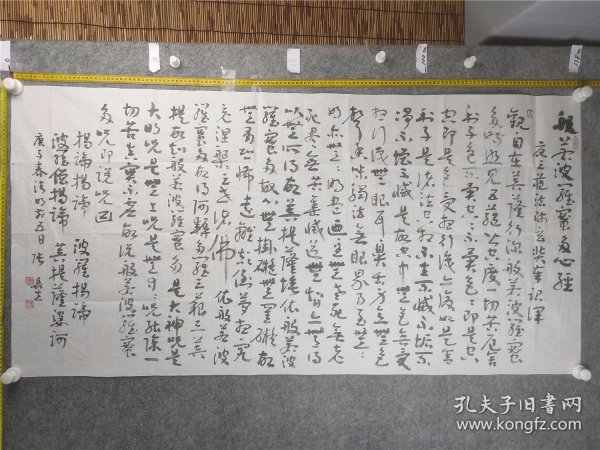 般若波羅蜜多心經
唐三藏法師玄奘奉詔譯
觀自在菩薩行深般若波羅蜜
多時照見五蘊皆空度一切苦厄舍
利子色不異空空不異色色即是空
空即是色受想行識亦復如是舍
利子是諸法空相不生不滅不垢不
淨不增不減是故空中無色無受
想行識無眼耳鼻舌身意無色
聲香味觸法無眼界乃至無
明亦無無明盡乃至無老死亦無老
死盡無苦集滅道無智亦無得
以無所得故菩提薩埵依般若波
羅蜜多故心無掛礙無罣礙故
無有恐怖遠離顛倒夢想究
竟涅槃三世諸佛依般若波
羅蜜多故得阿耨多羅三藐三菩
提故知般若波羅蜜多是大神咒是
大明咒是無上咒是無等等咒能除一
切苦真實不虛故說般若波羅蜜
多咒即說咒曰
揭諦揭諦 波羅揭諦
波羅僧揭諦 菩提薩婆訶
孔夫子旧书网
www.kongfz.com